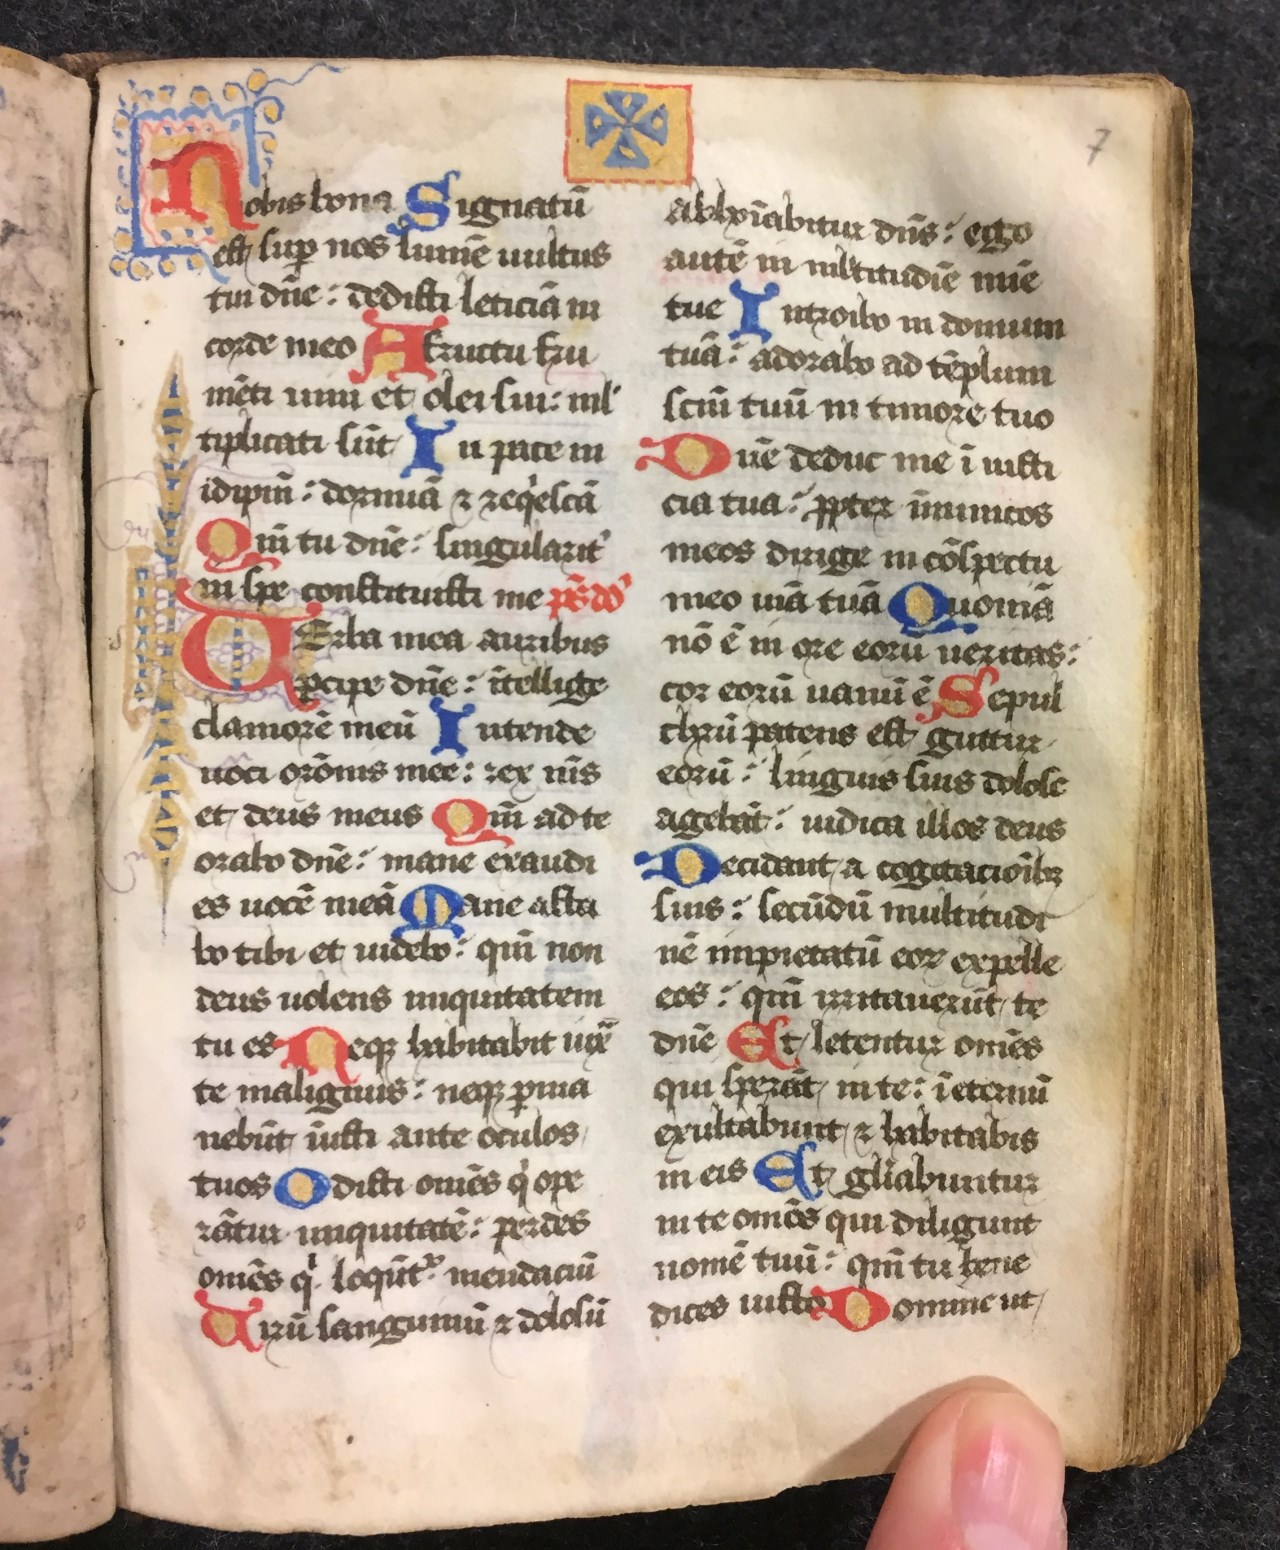 7
Nobis bona Signatū
est sup̄ nos lumē uultus
tui dn̄e : dedisti leticiā in
corde meo A fructu fru
mēti uini et olei sui : ml'
tiplicati sūt In pace in
idip̄m̄ : dormiā ⁊ reqͥescā
Qm̄ tu dn̄e : singularit'
in spe constituisti me ps̄ dd'
UErba mea auribus
percipe dn̄e : ītellige
clamorē meū Intende
uoci orōnis mee : rex m̄s
et deus meus Qm̄ ad te
orabo dn̄e : mane exaudi
es uocē meā Mane asta
bo tibi et uidebo : qm̄ non
deus uolens iniquitatem
tu es Neqꝫ habitabit iuxͣ
te malignus : neqꝫ p̱ma
nebūt īiusti ante oculos
tuos Odisti om̄es qͥ ope
rātur iniquitatē : perdes
om̄es qͥ loqūt᷑ mendaciū
Uirū sanguinū ⁊ dolosū
abhoīabitur dn̄s : ego
autē in ml'titudīe mīe
tue Introibo in domum
tuā : adorabo ad tēplum
scm̄ tuū in timore tuo
Dn̄e deduc me ī iusti
cia tua : ꝓpter inimicos
meos dirige in cōspectu
meo uiā tuā Quoniā
nō ē in ore eorū ueritas :
cor eorū uanū ē Sepul
chrū patens est guttur
eorū : linguis suis dolose
agebāt : iudica illos deus
Decidant a cogitacioībꝫ
suis : secūdū multitudi
nē impietatū eoꝝ expelle
eos : qm̄ irritauerūt te
dn̄e Et letentur om̄es
qui sperāt in te : ī eternū
exultabunt ⁊ habitabis
in eis Et gl̄iabuntur
in te om̄es qui diligunt
nomē tuū : qm̄ tu bene
dices iusto Domine ut